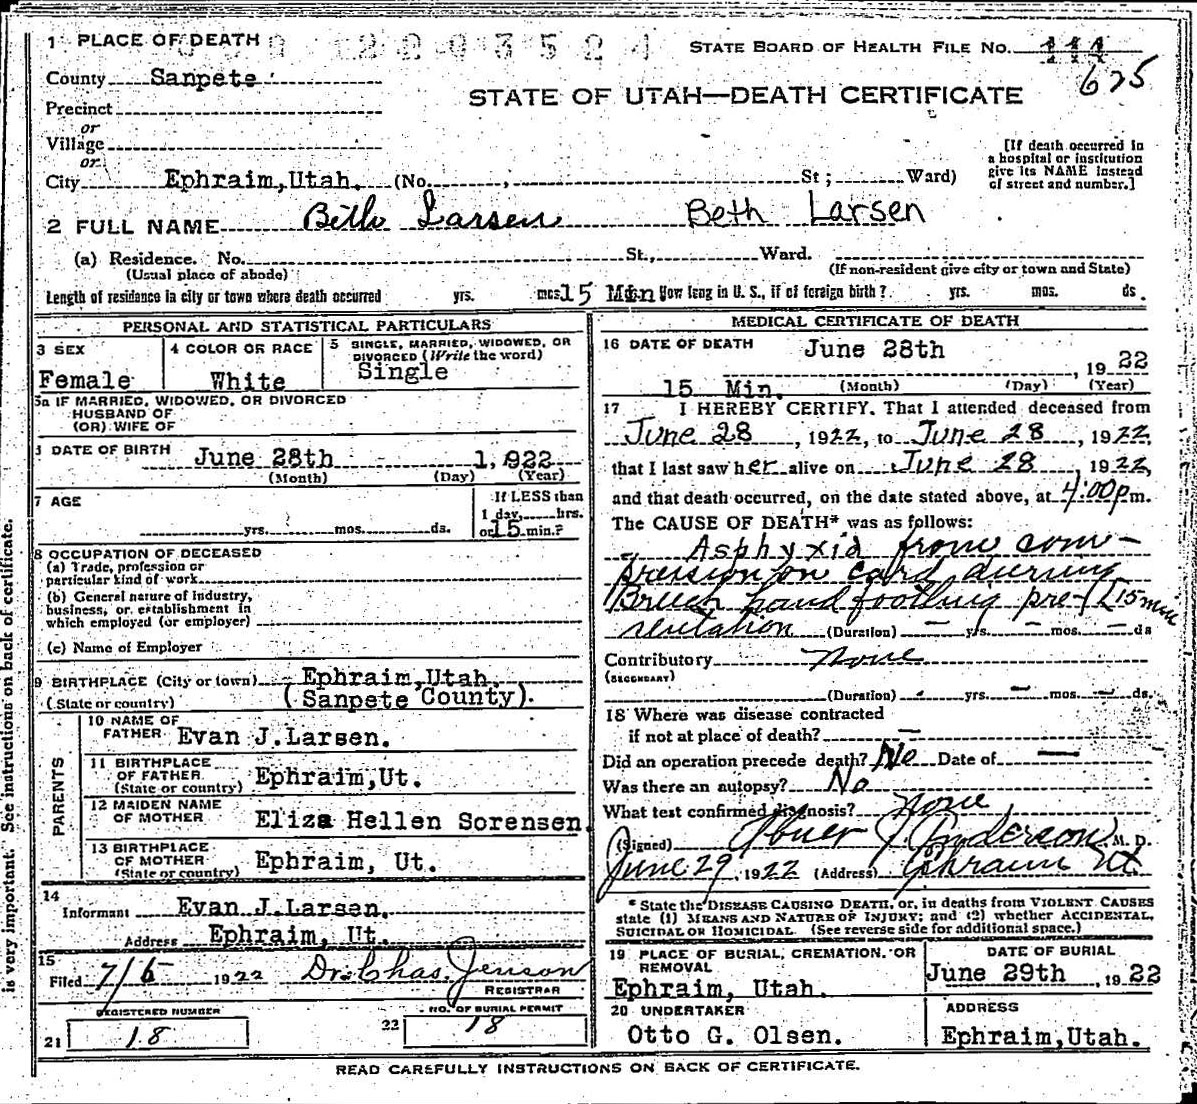 1 PLACE OF DEATH
STATE BOARD OF HEALTH FILE NO.
County Sanpete
675
Precinct
STATE OF UTAH—DEATH CERTIFICATE
or
Village
or
City Ephraim, Utah. (No. , St; Ward)
[If death occurred in
a hospital or institution
give its NAME instead
of street and number.]
2 FULL NAME Beth Larsen Beth Larsen
(a) Residence. No. St., Ward.
(Usual place of abode) (If non-resident give city or town and State)
Length of residence in city or town where death occurred yrs. mos 15 Min. How long in U. S., if of foreign birth? yrs. mos. ds.
PERSONAL AND STATISTICAL PARTICULARS
3 SEX
Female
4 COLOR OR RACE
White
5 SINGLE, MARRIED, WIDOWED, OR
DIVORCED (Write the word)
Single
5a IF MARRIED, WIDOWED, OR DIVORCED
HUSBAND OF
(OR) WIFE OF
DATE OF BIRTH June 28th 1, 922
(Month) (Day) (Year)
7 AGE
yrs. mos. ds.
If LESS than
1 day, hrs.
or 15 min.?
8 OCCUPATION OF DECEASED
(a) Trade, profession or
particular kind of work
(b) General nature of industry,
business, or establishment in
which employed (or employer)
(c) Name of Employer
9 BIRTHPLACE (City or town) Ephraim, Utah.
(State or country) (Sanpete County).
PARENTS
10 NAME OF
FATHER Evan J. Larsen.
11 BIRTHPLACE
OF FATHER
(State or country) Ephraim, Ut.
12 MAIDEN NAME
OF MOTHER Eliza Hellen Sorensen.
13 BIRTHPLACE
OF MOTHER
(State or country) Ephraim, Ut.
14
Informant Evan J. Larsen.
Address Ephraim, Ut.
15
Filed 7/5 1922 Dr. Chas. Jenson
REGISTRAR
REGISTERED NUMBER
21 18
NO. OF BURIAL PERMIT
22 18
MEDICAL CERTIFICATE OF DEATH
16 DATE OF DEATH June 28th , 1922
15 Min. (Month) (Day) (Year)
17 I HEREBY CERTIFY, That I attended deceased from
June 28 , 1922, to June 28 , 1922,
that I last saw her alive on June 28 , 1922,
and that death occurred, on the date stated above, at 4:00 p m.
The CAUSE OF DEATH* was as follows:
Asphyxia from com-
pression on cord durring
Breech hand footling pre- 15 min
sentation (Duration) — yrs. — mos. — ds
Contributory None
(SECONDARY)
(Duration) - yrs. — mos. — ds.
18 Where was disease contracted
if not at place of death? —
Did an operation precede death? No Date of —
Was there an autopsy? No
What test confirmed diagnosis? None
(Signed) Abner J Anderson M. D.
June 29, 1922 (Address) Ephraim Ut
* State the DISEASE CAUSING DEATH, or, in deaths from VIOLENT CAUSES
state (1) MEANS AND NATURE OF INJURY; and (2) whether ACCIDENTAL,
SUICIDAL OR HOMICIDAL. (See reverse side for additional space.)
19 PLACE OF BURIAL, CREMATION, OR
REMOVAL
Ephraim, Utah.
DATE OF BURIAL
June 29th , 1922
20 UNDERTAKER
Otto G. Olsen.
ADDRESS
Ephraim, Utah.
READ CAREFULLY INSTRUCTIONS ON BACK OF CERTIFICATE.
is very important. See instructions on back of certificate.